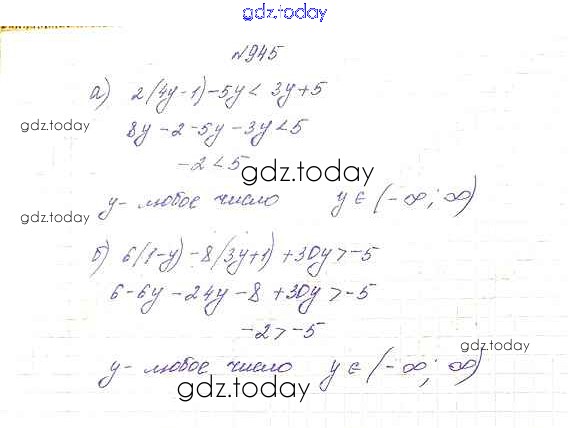 gdz.today
№945
а) 2(4y-1)-5y < 3y+5
gdz.today
8y-2-5y-3y<5
-2<5
gdz.today
y - любое число y ∈ (-∞; ∞)
gdz.today
б) 6(1-y)-8(3y+1)+30y>-5
6-6y-24y-8+30y>-5
-2>-5
gdz.today
y - любое число y ∈ (-∞; ∞)
gdz.today